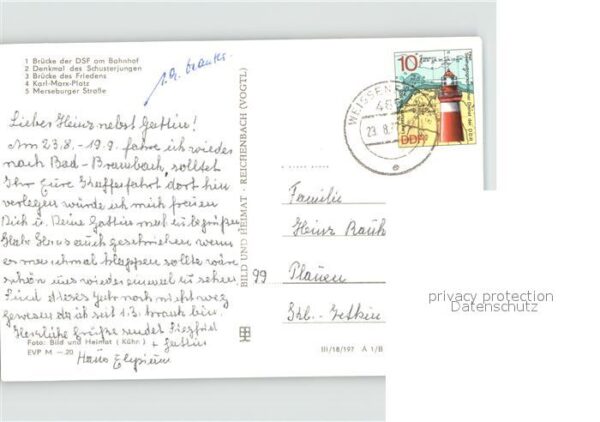 1 Brücke der DSF am Bahnhof
2 Denkmal des Schusterjungen
3 Brücke des Friedens
4 Karl-Marx-Platz
5 Merseburger Straße
Liebes Heinz nebst Gattin!
Am 23.8. - 19.9. fahre ich wieder
nach Bad-Brambach, solltet
Ihr Eure Skatferfahrt dort hin
verlegen würde ich mich freuen
Dich u. Deine Gattin mal zu begrüßen
Habe Claus auch geschrieben wenn
es manchmal klappen sollte wär
schön uns wieder einmal zu sehen
Sind dieses Jahr noch nicht weg
gewesen da ich seit 1.3. krank bin
Herzliche Grüße sendet Siegfried
+ Gattin
Foto: Bild und Heimat (Kühn)
EVP M —.20
Haus Elysium
BILD UND HEIMAT · REICHENBACH (VOGTL)
99
III/18/197 A 1/B
WEISSENF
48
23.8.
10
DDR
Familie
Heinz Rauh
Plauen
Str.- Zetkin
privacy protection
Datenschutz